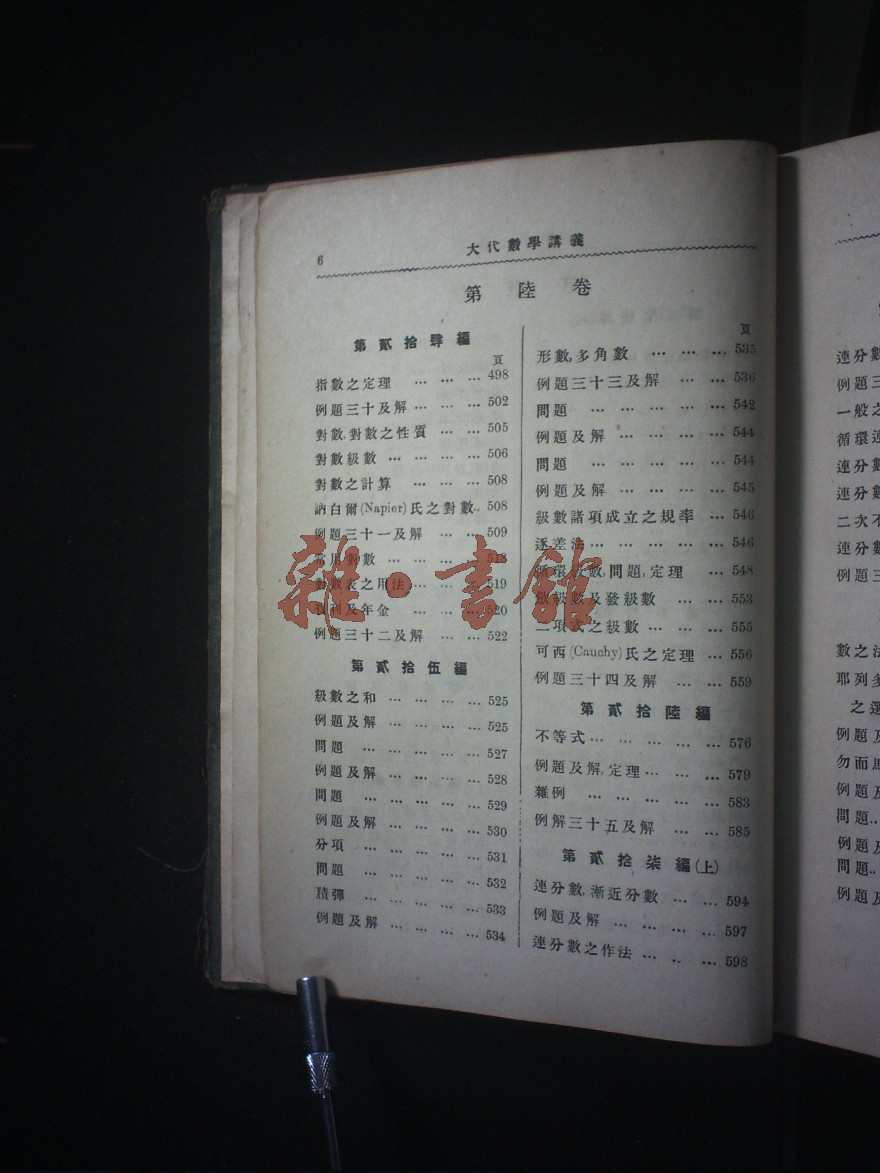 6
大代數學講義
第陸卷
第貳拾肆編
頁
指數之定理 … … … 498
例題三十及解 … … … 502
對數,對數之性質 … … 505
對數級數 … … … … 506
對數之計算 … … … 508
訥白爾(Napier)氏之對數.. 508
例題三十一及解 … … 509
常用對數 … … … 518
對數表之用法 … … … 519
複利及年金 … … … 520
例題三十二及解 … … 522
第貳拾伍編
級數之和 … … … … 525
例題及解 … … … … 525
問題 … … … … … 527
例題及解 … … … … 528
問題 … … … … … 529
例題及解 … … … … 530
分項 … … … … … 531
問題 … … … … … 532
積彈 … … … … … 533
例題及解 … … … … 534
頁
形數,多角數 … … … 535
例題三十三及解 … … 536
問題 … … … … … 542
例題及解 … … … … 544
問題 … … … … … 544
例題及解 … … … … 545
級數諸項成立之規率 … 546
逐差法 … … … … … 546
循環級數,問題,定理 … 548
斂級數及發級數 … … 553
二項式之級數 … … … 555
可西(Cauchy)氏之定理 … 556
例題三十四及解 … … 559
第貳拾陸編
不等式 … … … … … 576
例題及解,定理 … … … 579
雜例 … … … … … 583
例解三十五及解 … … 585
第貳拾柒編(上)
連分數,漸近分數 … … 594
例題及解 … … … … 597
連分數之作法 … .. … 598
連分數
例題三
一般之
循環連
連分數
連分數
二次不
連分數
例題三
數之法
耶列多
之運
例題及
勿而馬
例題及
問題..
例題及
問題..
例題及
雜·書館